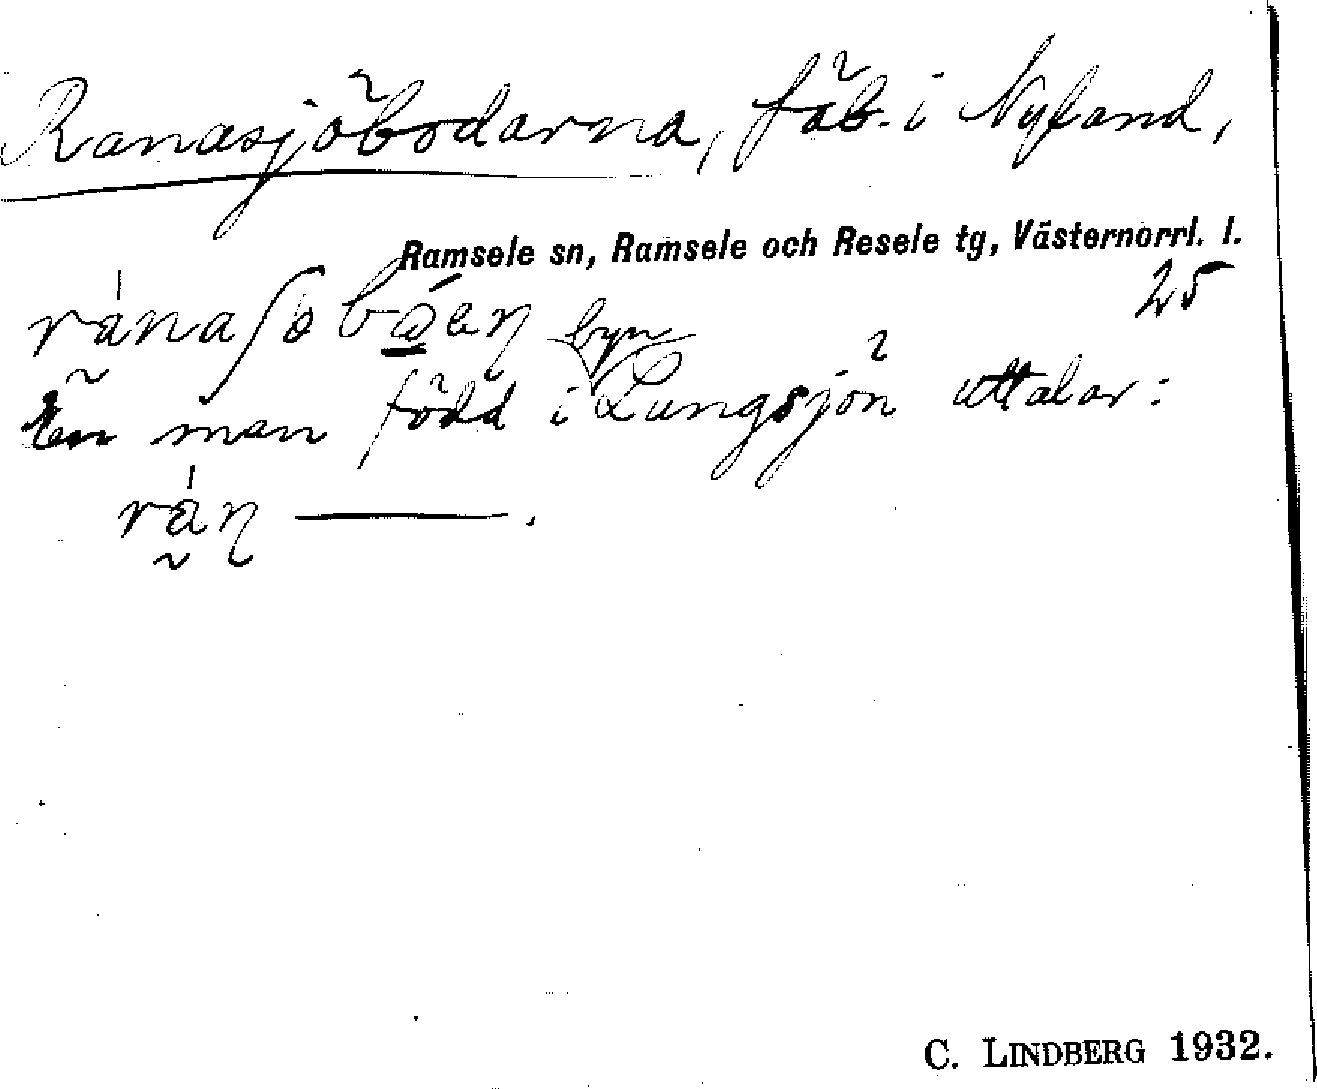 Ranasjöbodarna, fäb. i Nyland,
Ramsele sn, Ramsele och Resele tg, Västernorrl. l.
25
En man född i byn Lungsjön uttalar:
C. LINDBERG 1932.